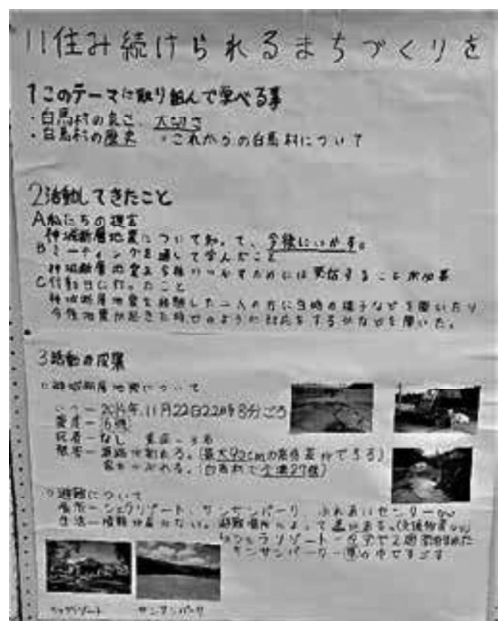 11住み続けられるまちづくりを
1このテーマに取り組んで学べる事
・白馬村の良さ、大切さ
・白馬村の歴史 ・これからの白馬村について
2活動してきたこと
A私たちの提言
神城断層地震について知って、今後にいかす。
Bミーティングを通して学んだこと
神城断層地震を今後いかすためには発信することが必要
C行動日に行ったこと
神城断層地震を経験した二人の方に当時の様子などを聞いたり
今後地震が起きた時どのように対応をするかなどを聞いた。
3活動の成果
神城断層地震について
いつー2014年、11月22日22時8分ごろ
震度ー
死者ーなし
被害ー道路が割れる。(最大90cmの高低差ができる)
家がつぶれる。(白馬村で全壊27棟)
避難について
場所ーシェラリゾート、サンサンパーク、ふれあいセンター
生活ー情報が来ない。避難場所によって差がある。
シェラリゾートー
サンサンパークー車の中ですごす
シェラリゾート サンサンパーク